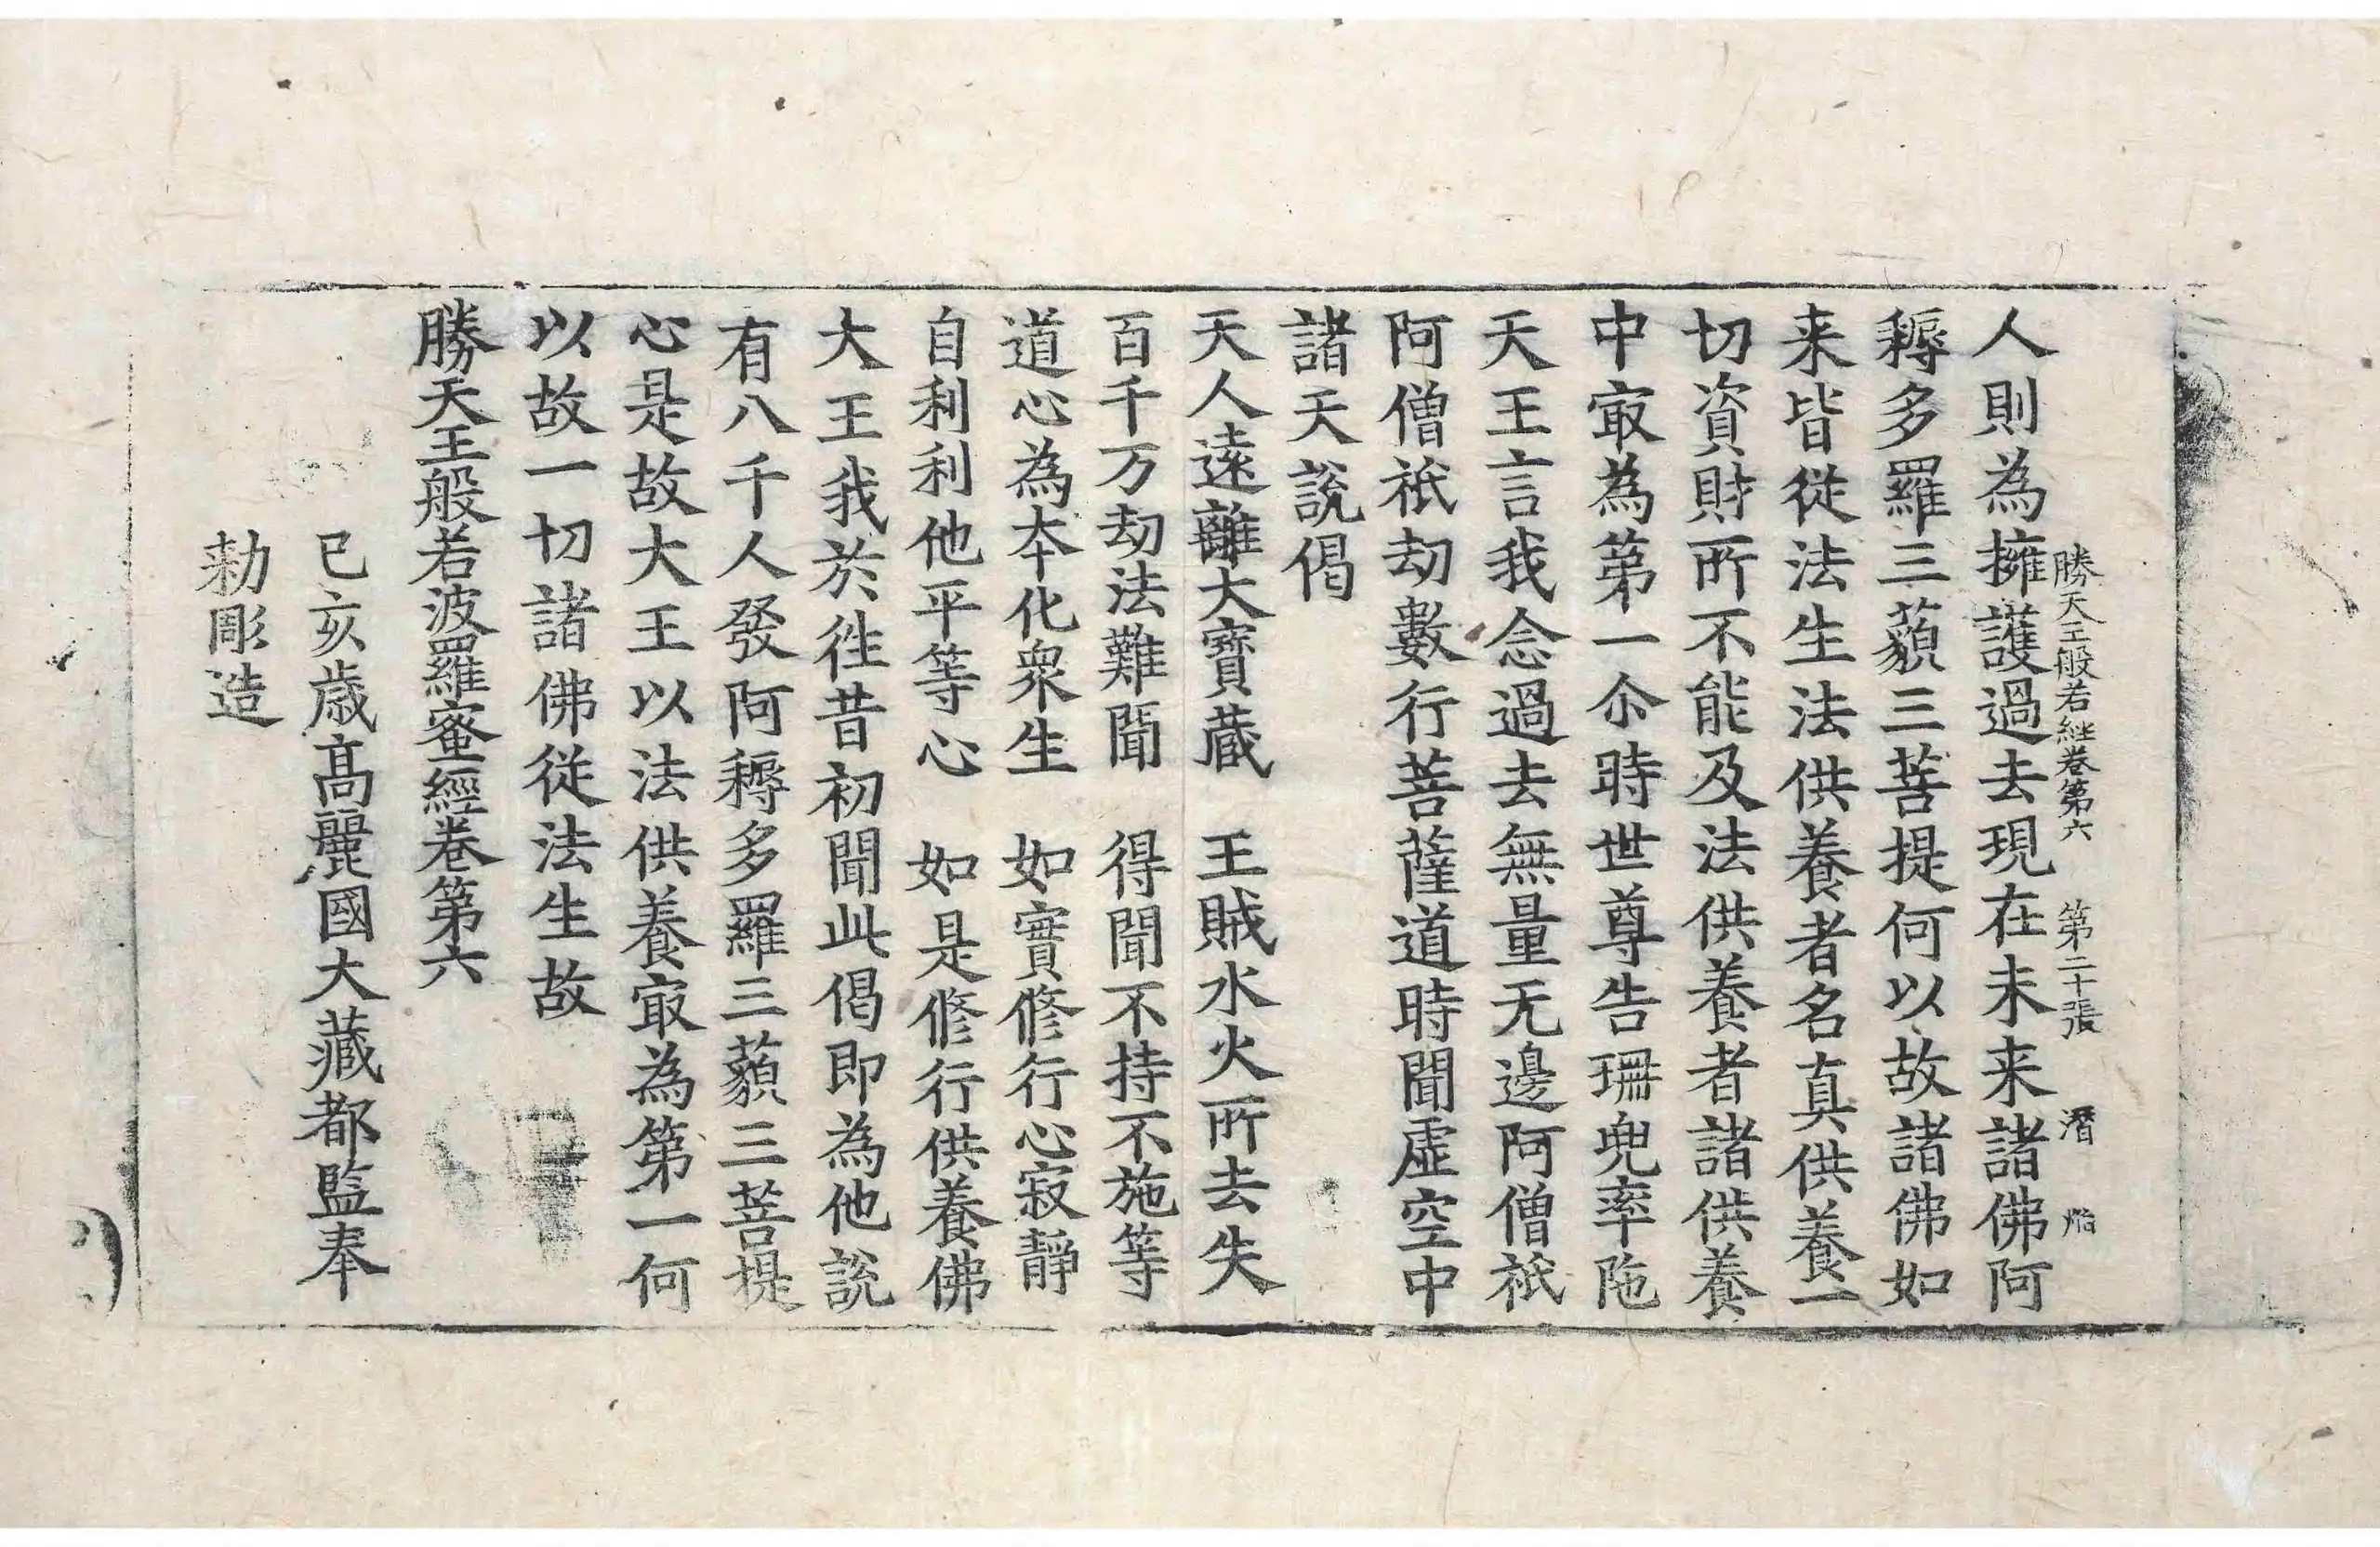 勝天王般若經卷第六 第二十張 潛
人則為擁護過去現在未来諸佛阿
耨多羅三藐三菩提何以故諸佛如
来皆從法生法供養者名真供養一
切資財所不能及法供養者諸供養
中㝡為第一尒時世尊告珊兜率陁
天王言我念過去無量无邊阿僧祇
阿僧祇劫數行菩薩道時聞虛空中
諸天說偈
天人遠離大寶蔵 王賊水火所去失
百千万劫法難聞 得聞不持不施等
道心為夲化衆生 如實修行心寂靜
自利利他平等心 如是修行供養佛
大王我於徃昔初聞此偈即為他說
有八千人發阿耨多羅三藐三菩提
心是故大王以法供養㝡為第一何
以故一切諸佛從法生故
勝天王般若波羅蜜經卷第六
己亥歳髙麗國大藏都監奉
勑彫造